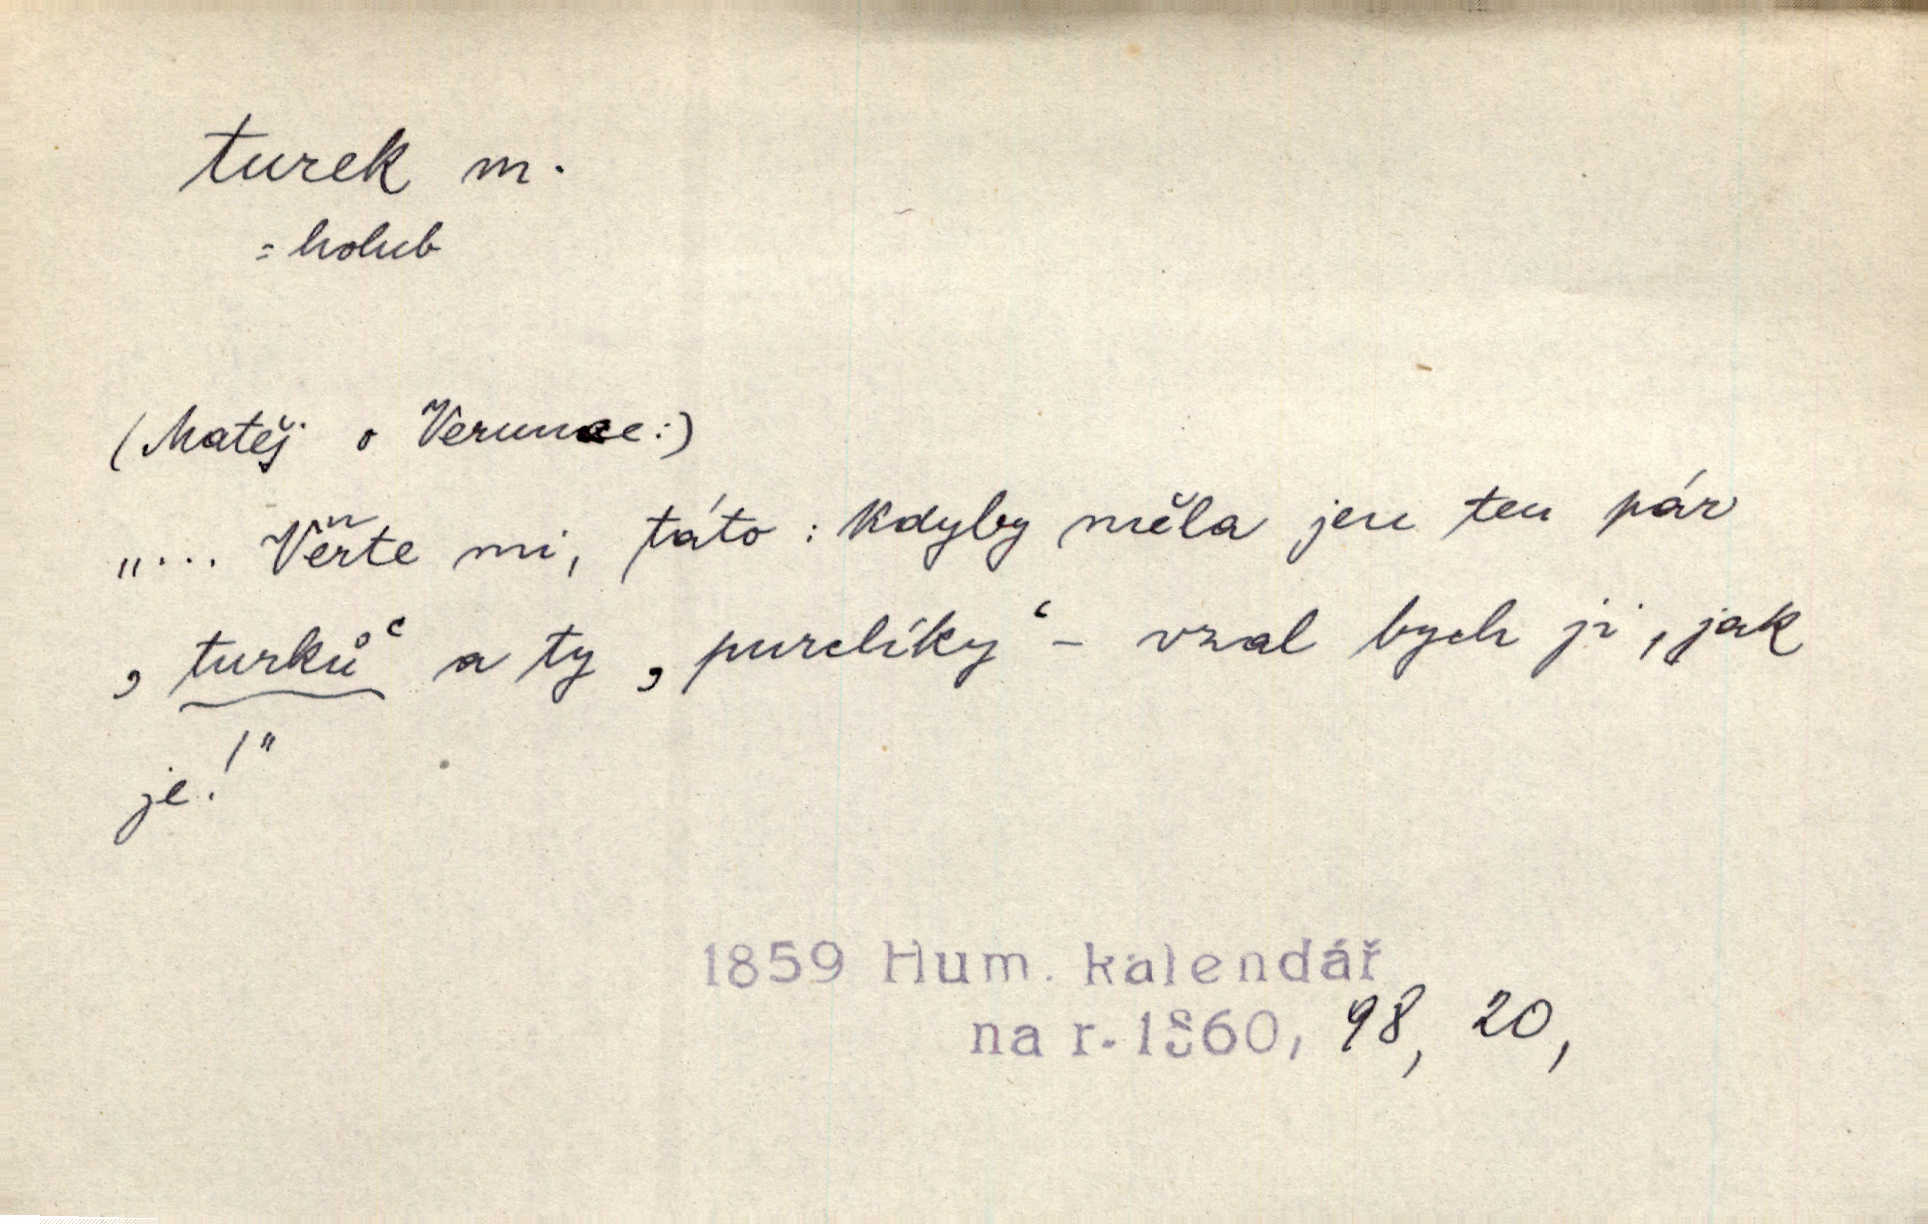 turek m.
= holub
(Matěj o Verunce:)
„... Věřte mi, táto: kdyby měla jen ten pár
‚turků‘ a ty ‚purclíky‘ – vzal bych ji, jak
je!"
1859 Hum. kalendář
na r. 1860, 98, 20,